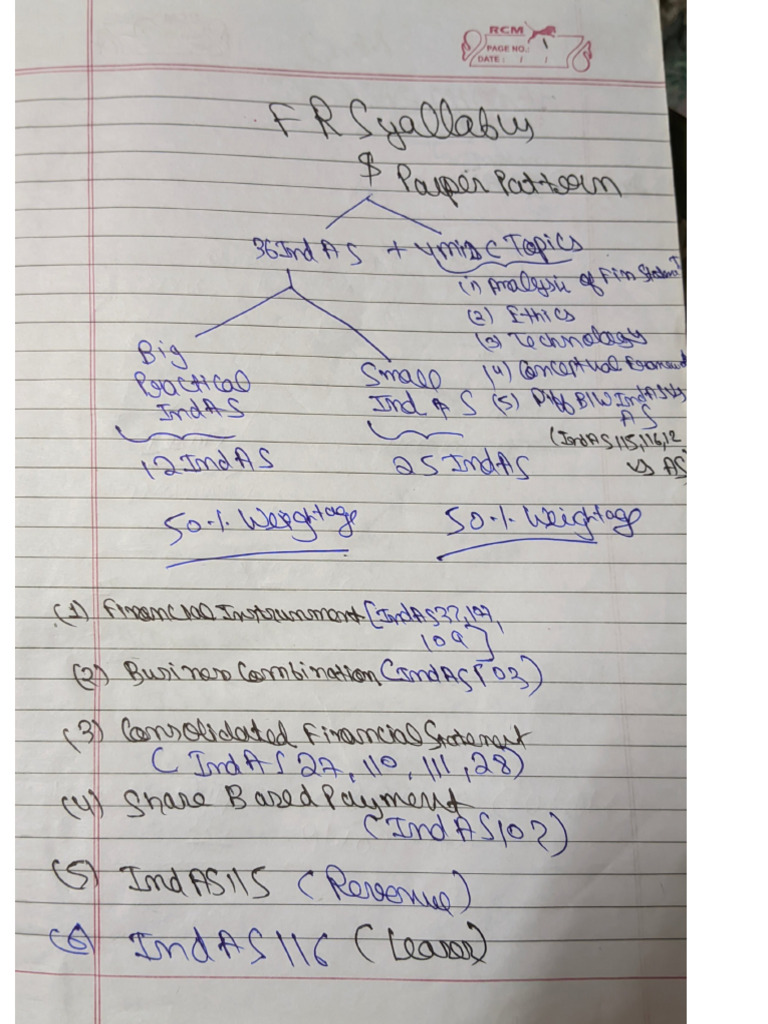 RCM
PAGE NO.: 1
DATE: / /
FR Syallabus
& Paper Pattern
36 Ind AS + 4 misc Topics
(1) Analysis of Fin Statement
(2) Ethics
(3) Technology
(4) Conceptual Framework
(5) Diff B/W Ind AS vs
AS
(Ind AS 115, 116, 12
vs AS
Big
Practical
Ind AS
Small
Ind AS
12 Ind AS
25 Ind AS
50% Weightage
50% Weightage
(1) Financial Instrument [Ind AS 32, 107,
109]
(2) Business Combination (Ind AS 103)
(3) Consolidated Financial Statement
(Ind AS 27, 110, 111, 28)
(4) Share Based Payment
(Ind AS 102)
(5) Ind AS 115 (Revenue)
(6) Ind AS 116 (Leases)